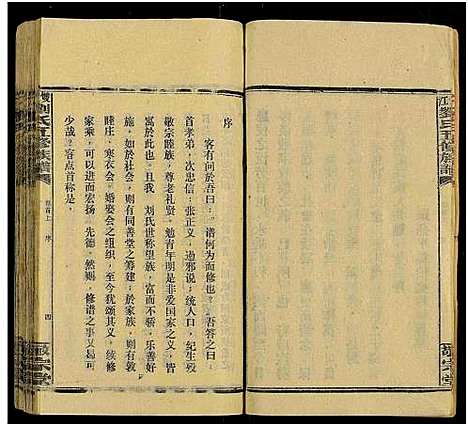 劉氏五修族譜
卷首上 序
四
敬宗堂
序
客有问於吾曰：谱何为而修也？吾答之曰：
首孝弟，次忠信；张正义，迪邪说；统人口，纪生殁
敬宗睦族，尊老礼贤，勉青年明是非爱国家之义，皆
寓於此也。且我 刘氏世称望族，富而不骄，乐善好
施，如於社会，则有同善堂之筹建；於家族，则有敦
睦庄、寒衣会、婚娶会之组织，至今犹颂其义，续修
家乘，可以进而宏扬 先德，然则，修谱之事又曷可
少哉？客点首称是。